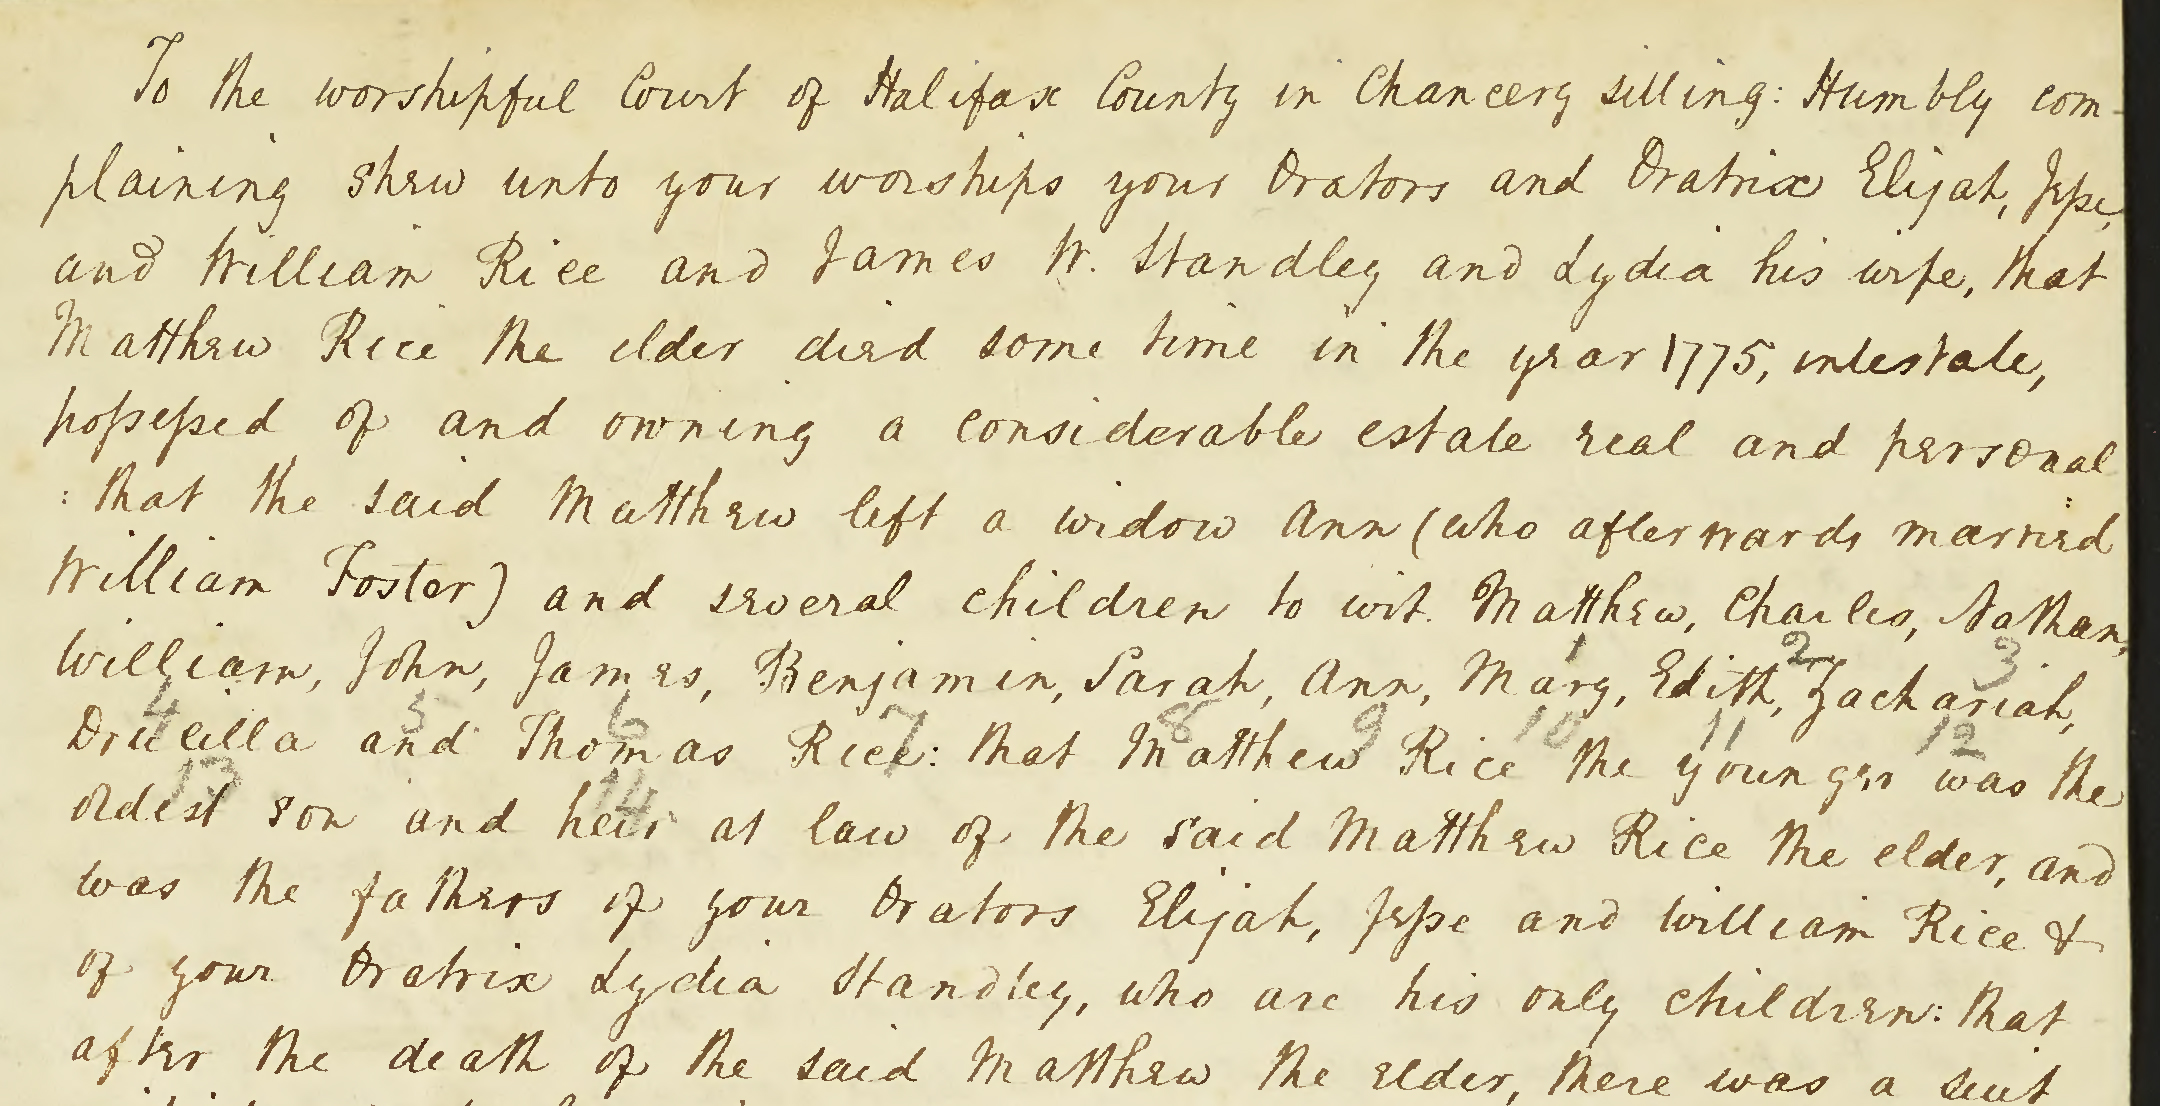 To the worshipful Court of Halifax County in Chancery sitting: Humbly com-
plaining shew unto your worships your Orators and Oratrix Elijah, Jesse,
and William Rice and James W. Standley and Lydia his wife, that
Matthew Rice the elder died some time in the year 1775, intestate,
possessed of and owning a considerable estate real and personal
: that the said Matthew left a widow Ann (who afterwards married
William Foster) and several children to wit. Matthew, Charles, Nathan,
1 2 3
William, John, James, Benjamin, Sarah, Ann, Mary, Edith, Zachariah,
4 5 6 7 8 9 10 11 12
Drucilla and Thomas Rice: that Matthew Rice the younger was the
13 14
oldest son and heir at law of the said Matthew Rice the elder, and
was the fathers of your Orators Elijah, Jesse and William Rice &
of your Oratrix Lydia Standley, who are his only children: that
after the death of the said Matthew the elder, there was a suit